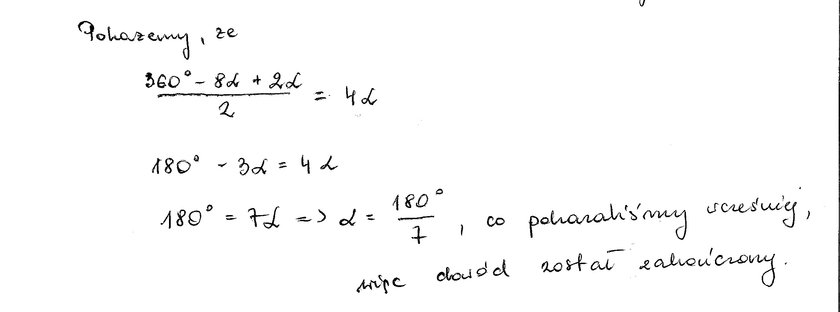 Pokażemy, że
360° - 8α + 2α / 2 = 4α
180° - 3α = 4α
180° = 7α => α = 180° / 7, co pokazaliśmy wcześniej,
więc dowód został zakończony.